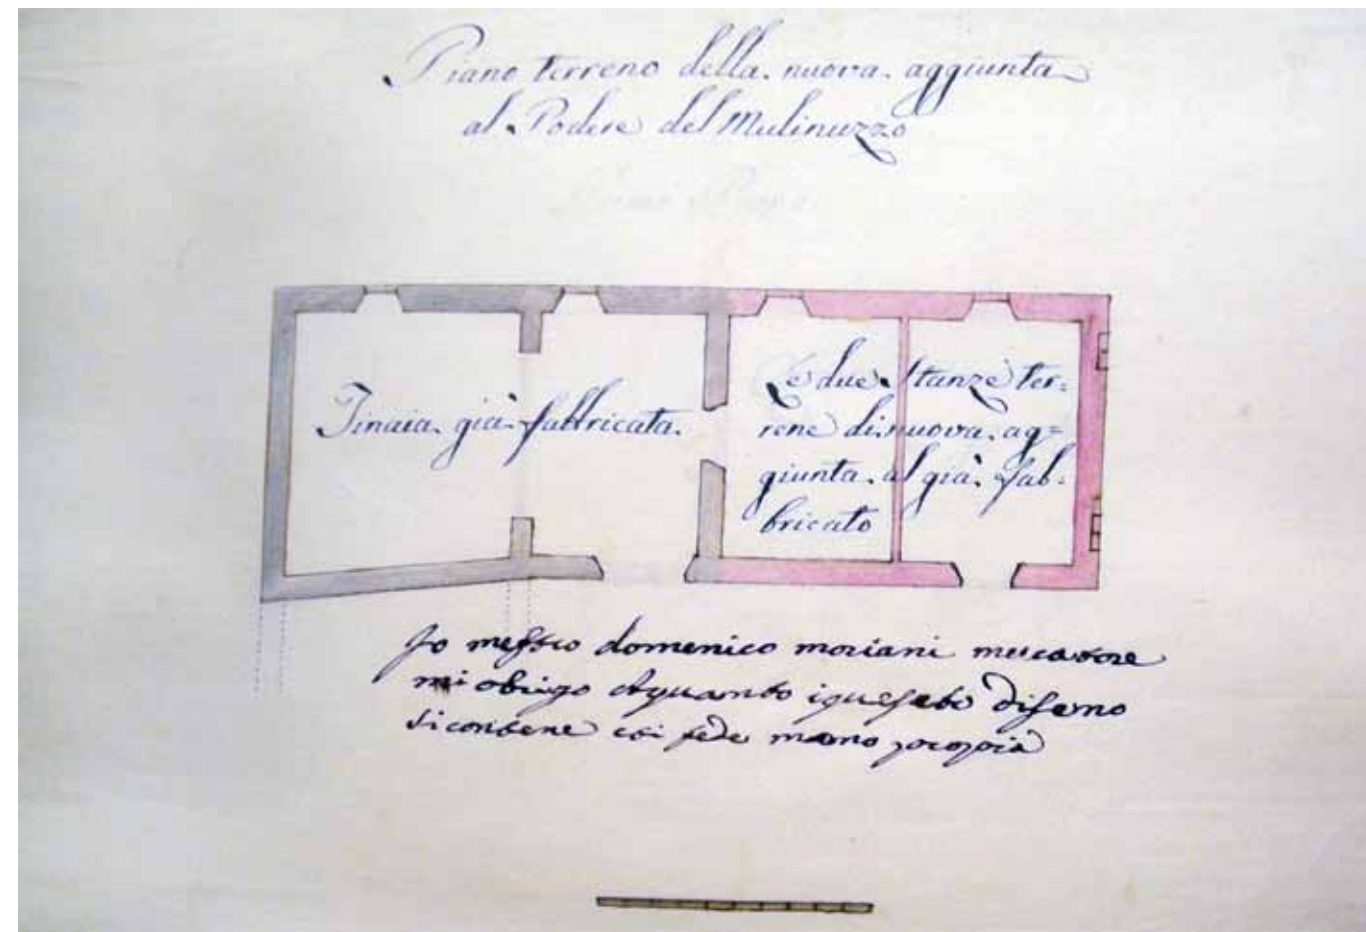 Piano terreno della nuova aggiunta
al Podere del Mulinuzzo
Tinaia già fabbricata.
Le due Stanze ter=
rene di nuova ag=
giunta al già fab=
bricato
Jo messo domenico moriani
mi obrigo quanto iquesto diseno
si contene fede mano propia